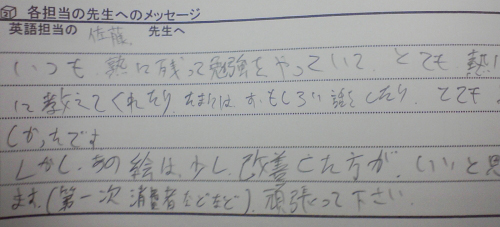 各担当の先生へのメッセージ
英語担当の 佐藤 先生へ
いつも 熱に残って勉強をやっていて、とても 熱
に教えてくれたり、たまにはおもしろい話をしたり、とても
しかったです
しかし、あの絵は、少し、改善した方が、いいと思
ます。(第一次 消費者などなど)、頑張って下さい。